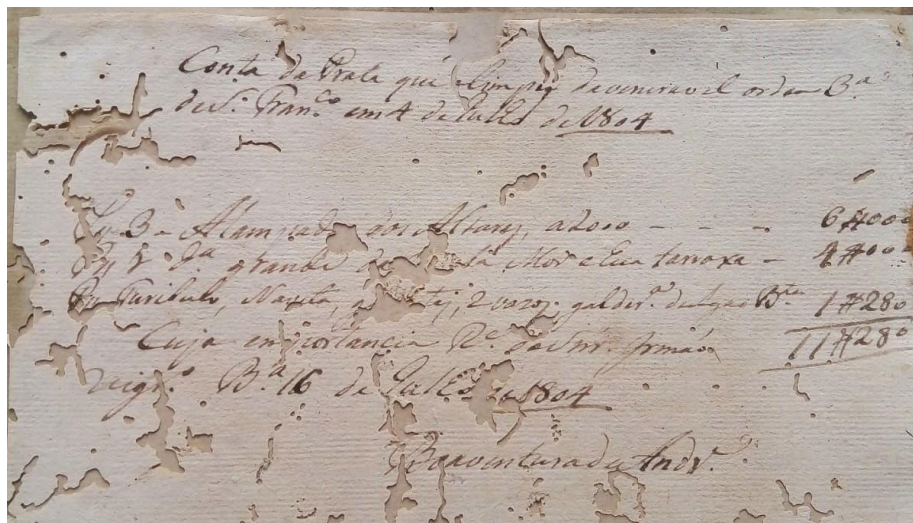 Conta da Prata que limpey da veneravel ordem 3.ª
de S. Fran.co em 4 de Julho de 1804
3 Alampadas dos Altares, a 2000 - - - 6#000
1 d.ª grande da Capela Mor e sua tarraxa - 4#000
Turibulo, Naveta, 2 vazos, galder.ª de agoa B.ta 1#280
11#280
Cuja emportancia R.e do Snr. Irmão
B.ª 16 de Julho de 1804
Boaventura de Andr.e